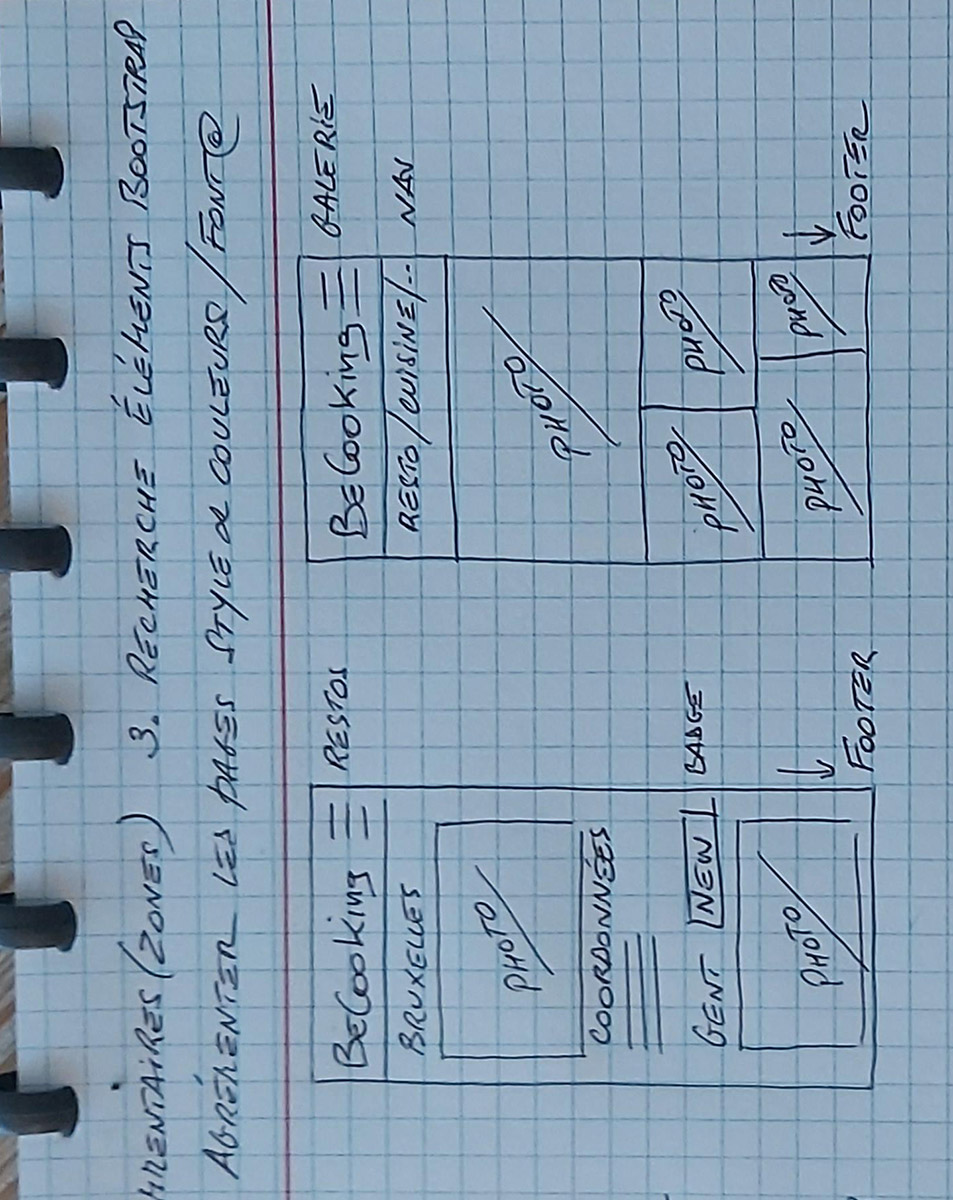 MENTAIRES (ZONES) 3. RECHERCHE ÉLÉMENTS BOOTSTRAP
AGRÉMENTER LES PAGES STYLE & COULEURS / FONT@
BeCooking RESTOS
BRUXELLES
PHOTO
COORDONNÉES
GENT NEW BADGE
PHOTO
FOOTER
BeCooking GALERIE
RESTO/CUISINE/.. NAV
PHOTO
PHOTO PHOTO
PHOTO PHOTO
FOOTER